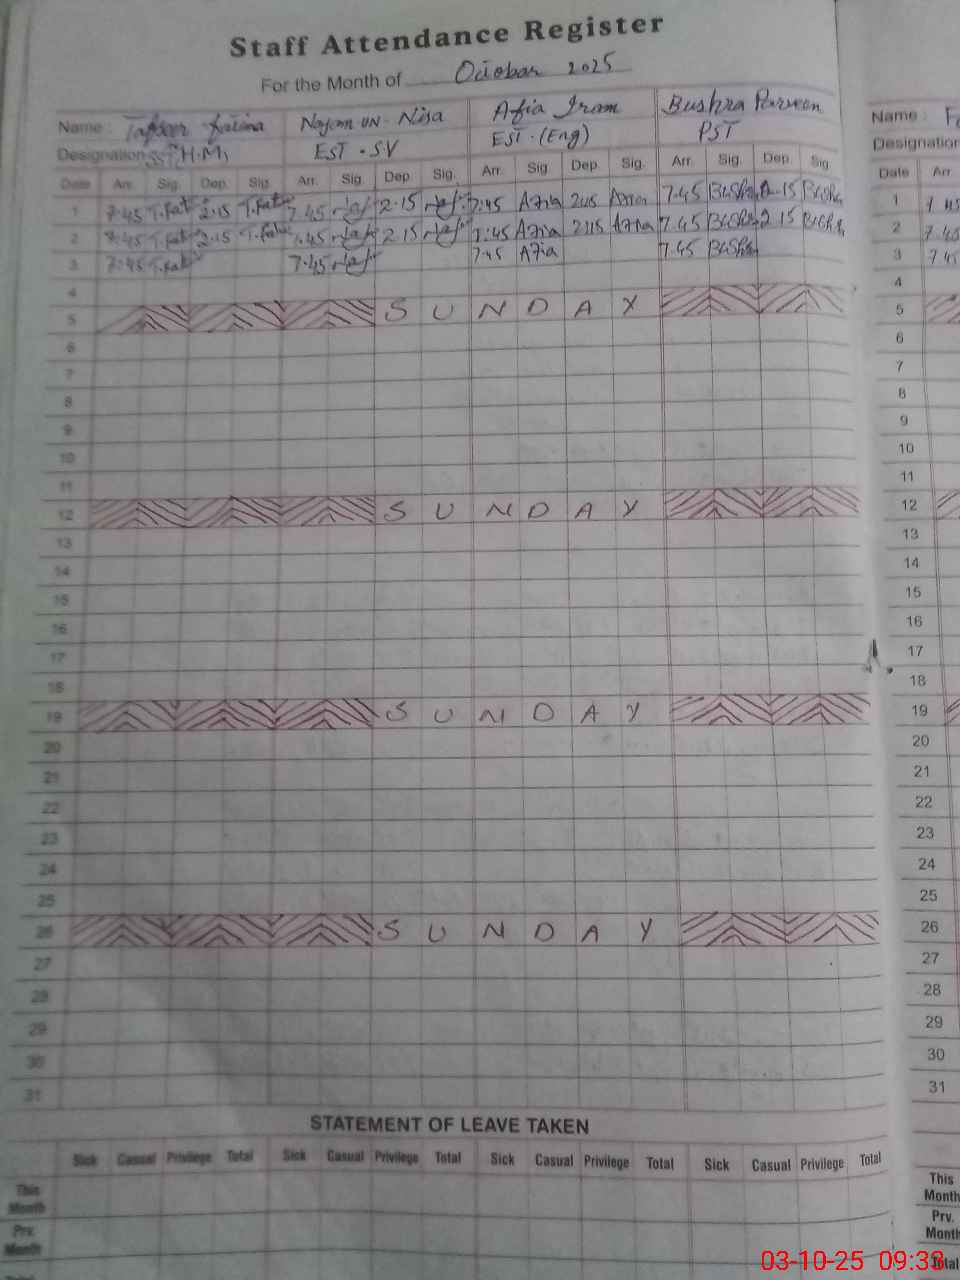 Staff Attendance Register
For the Month of October 2025
Name : Fatima Najam un. Nisa Afia Iram Bushra Parveen Name :
Designation SST (H.M) EST. SV EST. (Eng) PST Designation
Date Arr. Sig. Dep. Sig. Arr. Sig. Dep. Sig. Arr. Sig Dep. Sig. Arr. Sig. Dep. Sig. Date Arr
1 7.45 T.Fat 2.15 T.Fat 7.45 Naj 2.15 Naj 7:45 Afia 2:15 Afia 7.45 Bushra 2.15 Bushra 1 7.45
2 7.45 T.Fat 2.15 T.Fat 7.45 Naj 2.15 Naj 7:45 Afia 2:15 Afia 7.45 Bushra 2.15 Bushra 2 7.45
3 7:45 T.Fat 7.45 Naj 7:45 Afia 7.45 Bushra 3 7.45
4 4
5 SUNDAY 5
6 6
7 7
8 8
9 9
10 10
11 11
12 SUNDAY 12
13 13
14 14
15 15
16 16
17 17
18 18
19 SUNDAY 19
20 20
21 21
22 22
23 23
24 24
25 25
26 SUNDAY 26
27 27
28 28
29 29
30 30
31 31
STATEMENT OF LEAVE TAKEN
Sick Casual Privilege Total Sick Casual Privilege Total Sick Casual Privilege Total Sick Casual Privilege Total
This Month This Month
Prv. Month Prv. Month
Total
03-10-25 09:33